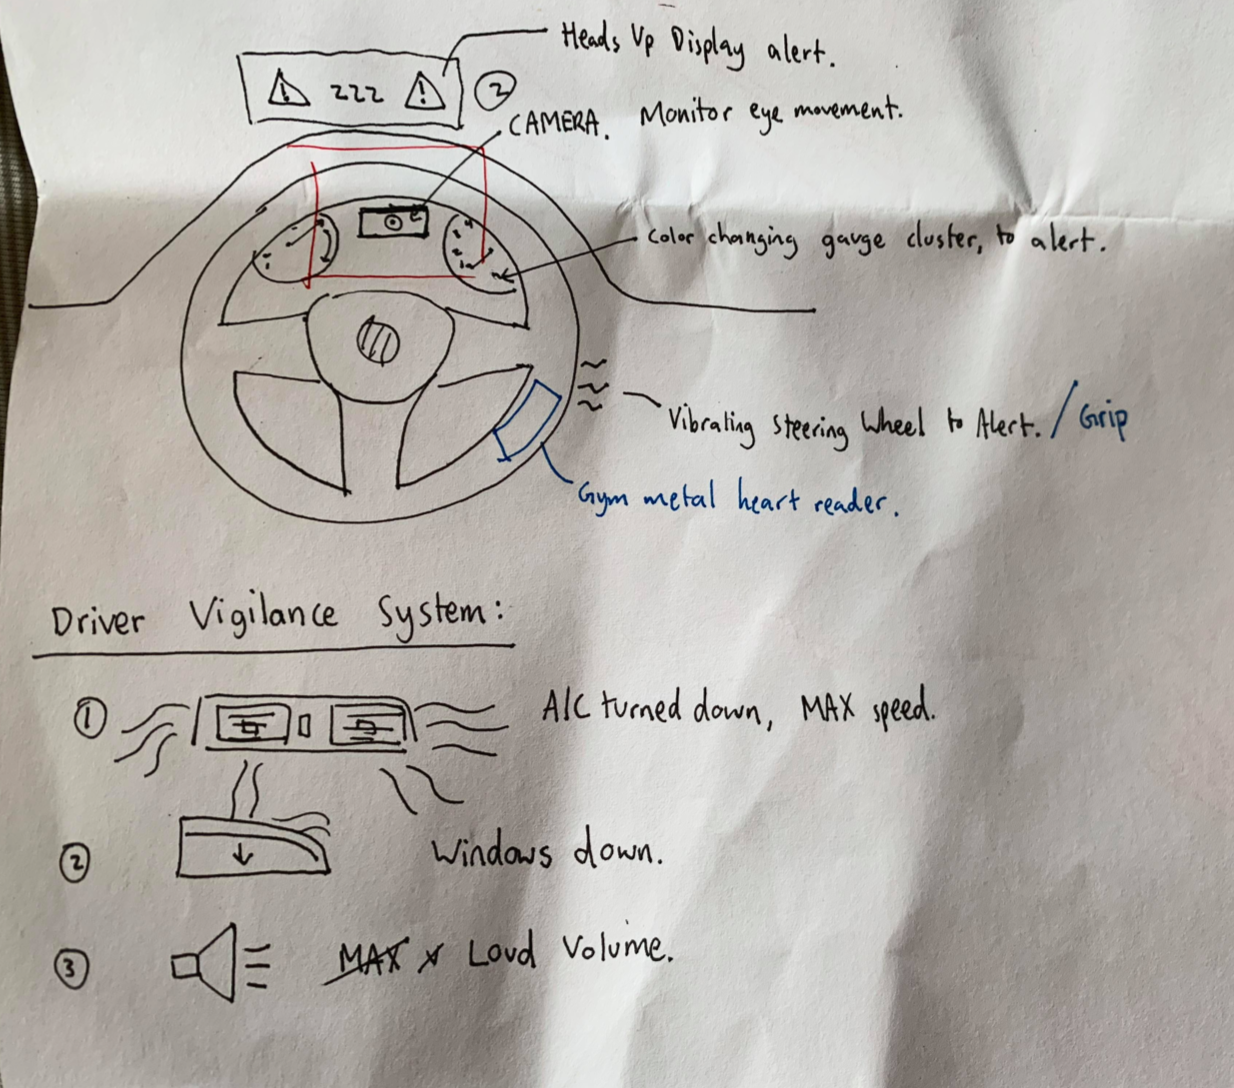 Heads Up Display alert.
⚠ zzz ⚠ ②
CAMERA. Monitor eye movement.
Color changing gauge cluster, to alert.
Vibrating Steering Wheel to Alert. / Grip
Gym metal heart reader.
Driver Vigilance System:
① A/C turned down, MAX speed.
② Windows down.
③ MAX Loud Volume.